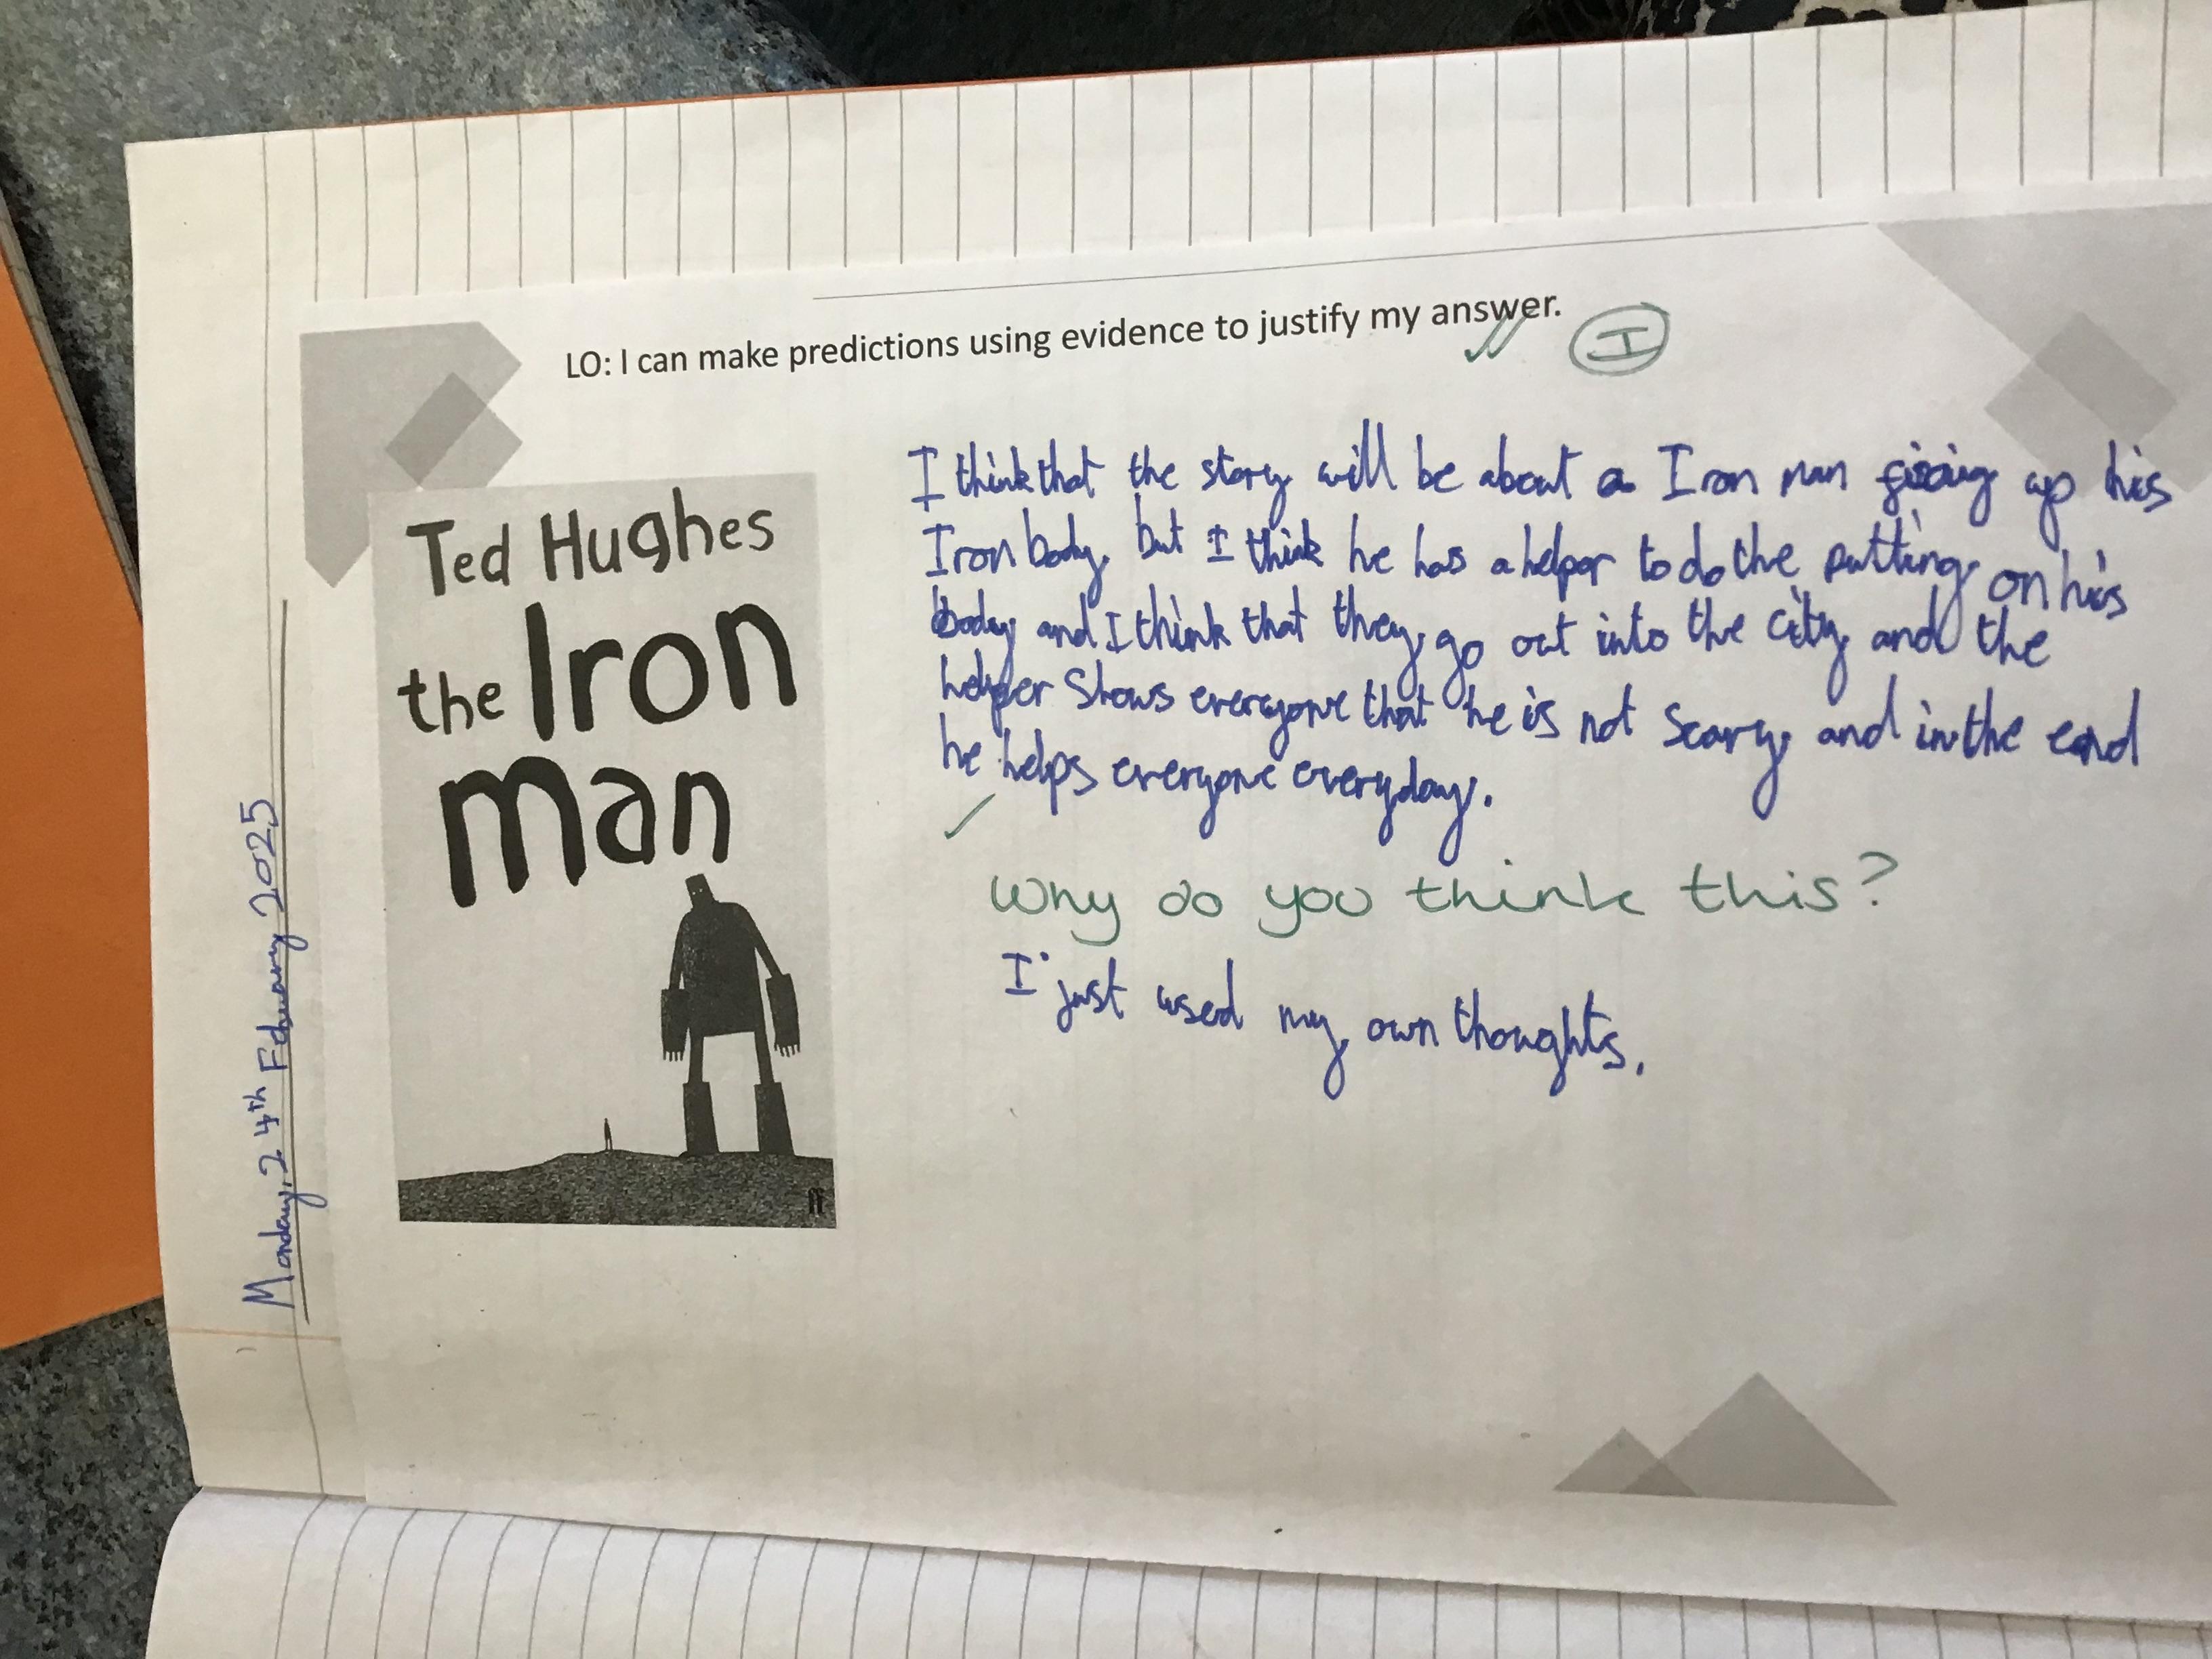 Monday, 24th Febuary 2025
LO: I can make predictions using evidence to justify my answer.
I
Ted Hughes
the Iron
man
ff
I think that the story will be about a Iron man up his
Iron body, but I think he has a helper to do the putting on his
body and I think that they go out into the city and the
helper shows everyone that he is not scary and in the end
he helps everyone everyday.
Why do you think this?
I just used my own thoughts.